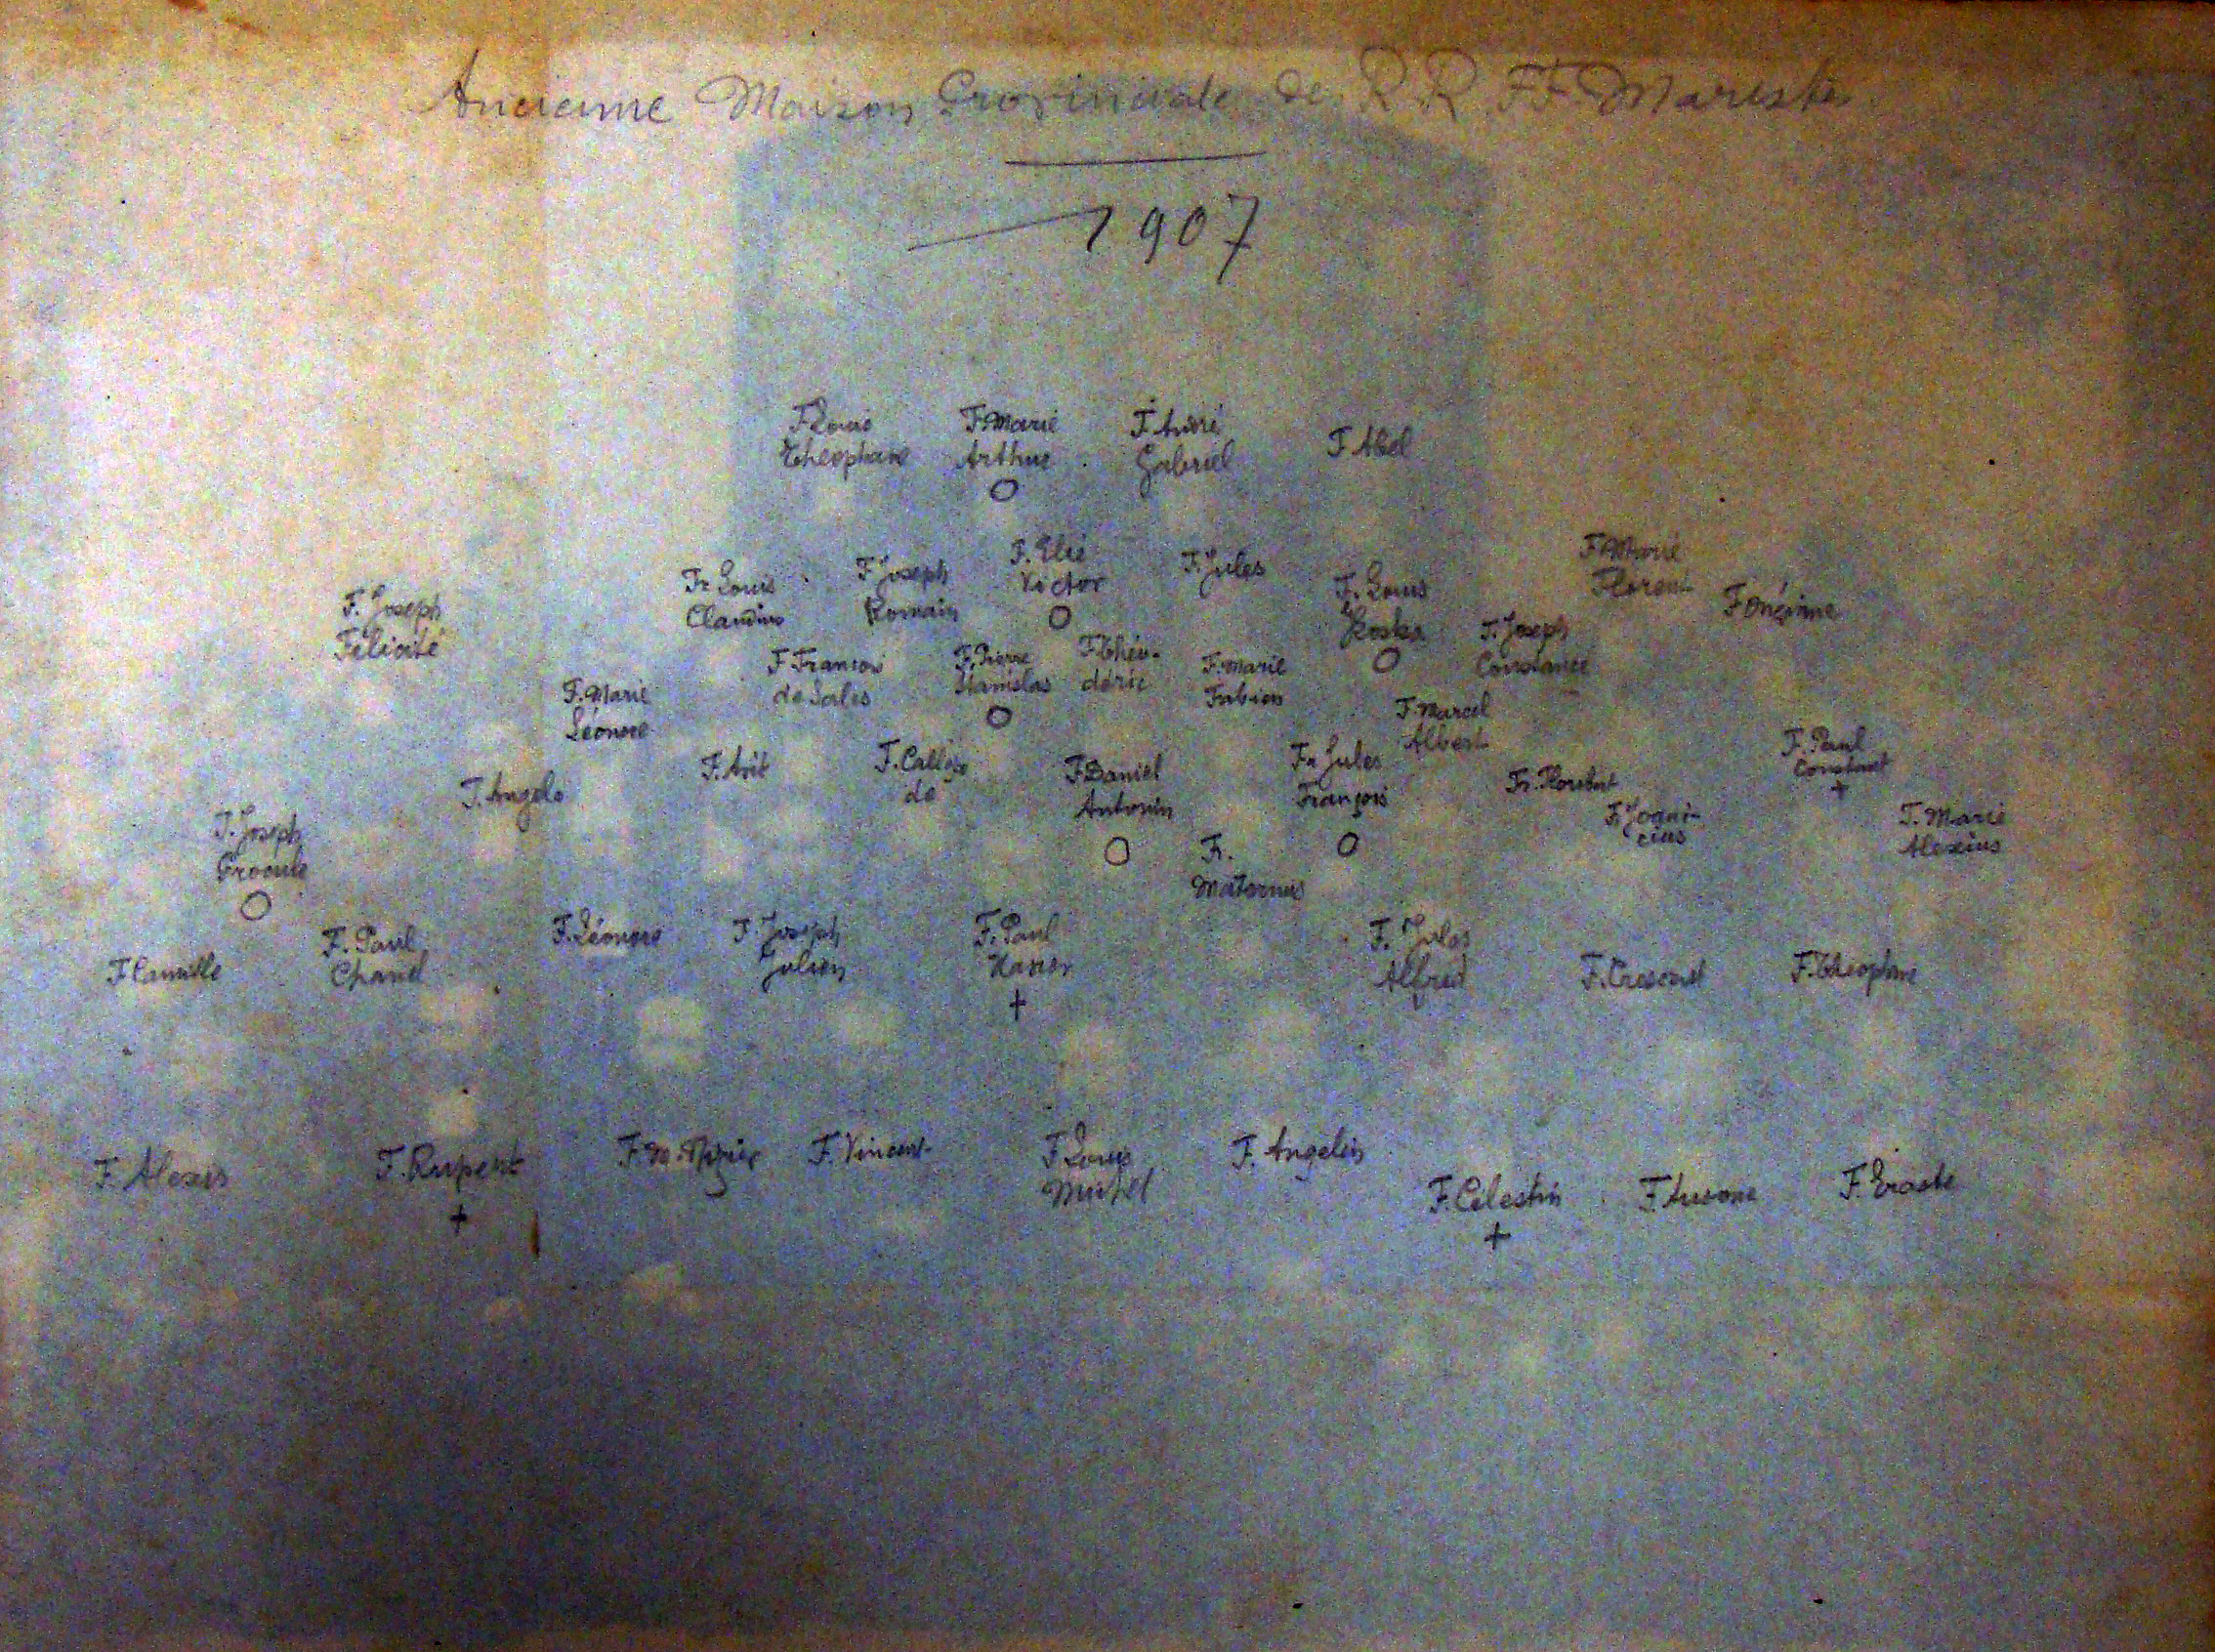 Ancienne Maison Provinciale de R R F F. Maristes
1907
F Louis Théophane
F Marie Arthur
F. André Gabriel
F Abel
F. Joseph Félicité
Fr Louis Claudius
F Joseph Romain
F. Elie Victor
F. Jules
F. Louis Kostka
F. Joseph Constance
F Marie Florent
F Onésime
F. Marie Léonce
F François de Sales
F. Pierre Stanislas
F Théodéric
F. Marie Fabien
F. Marcel Albert
F. Joseph
F. Angelo
F.
F. Daniel Antonin
Fr. Maternus
Fr Jules François
Fr.
F.
F. Paul Constant
F. Marie Alexius
F Camille
F. Paul Chanel
F. Léonore
F. Joseph Julien
F. Paul Xavier
F. Jules Alfred
F. Crescent
F. Théophane
F. Alexis
F. Rupert
F. M.
F. Vincent
F Louis Michel
F. Angelin
F. Célestin
F. Ausone
F. Eraste